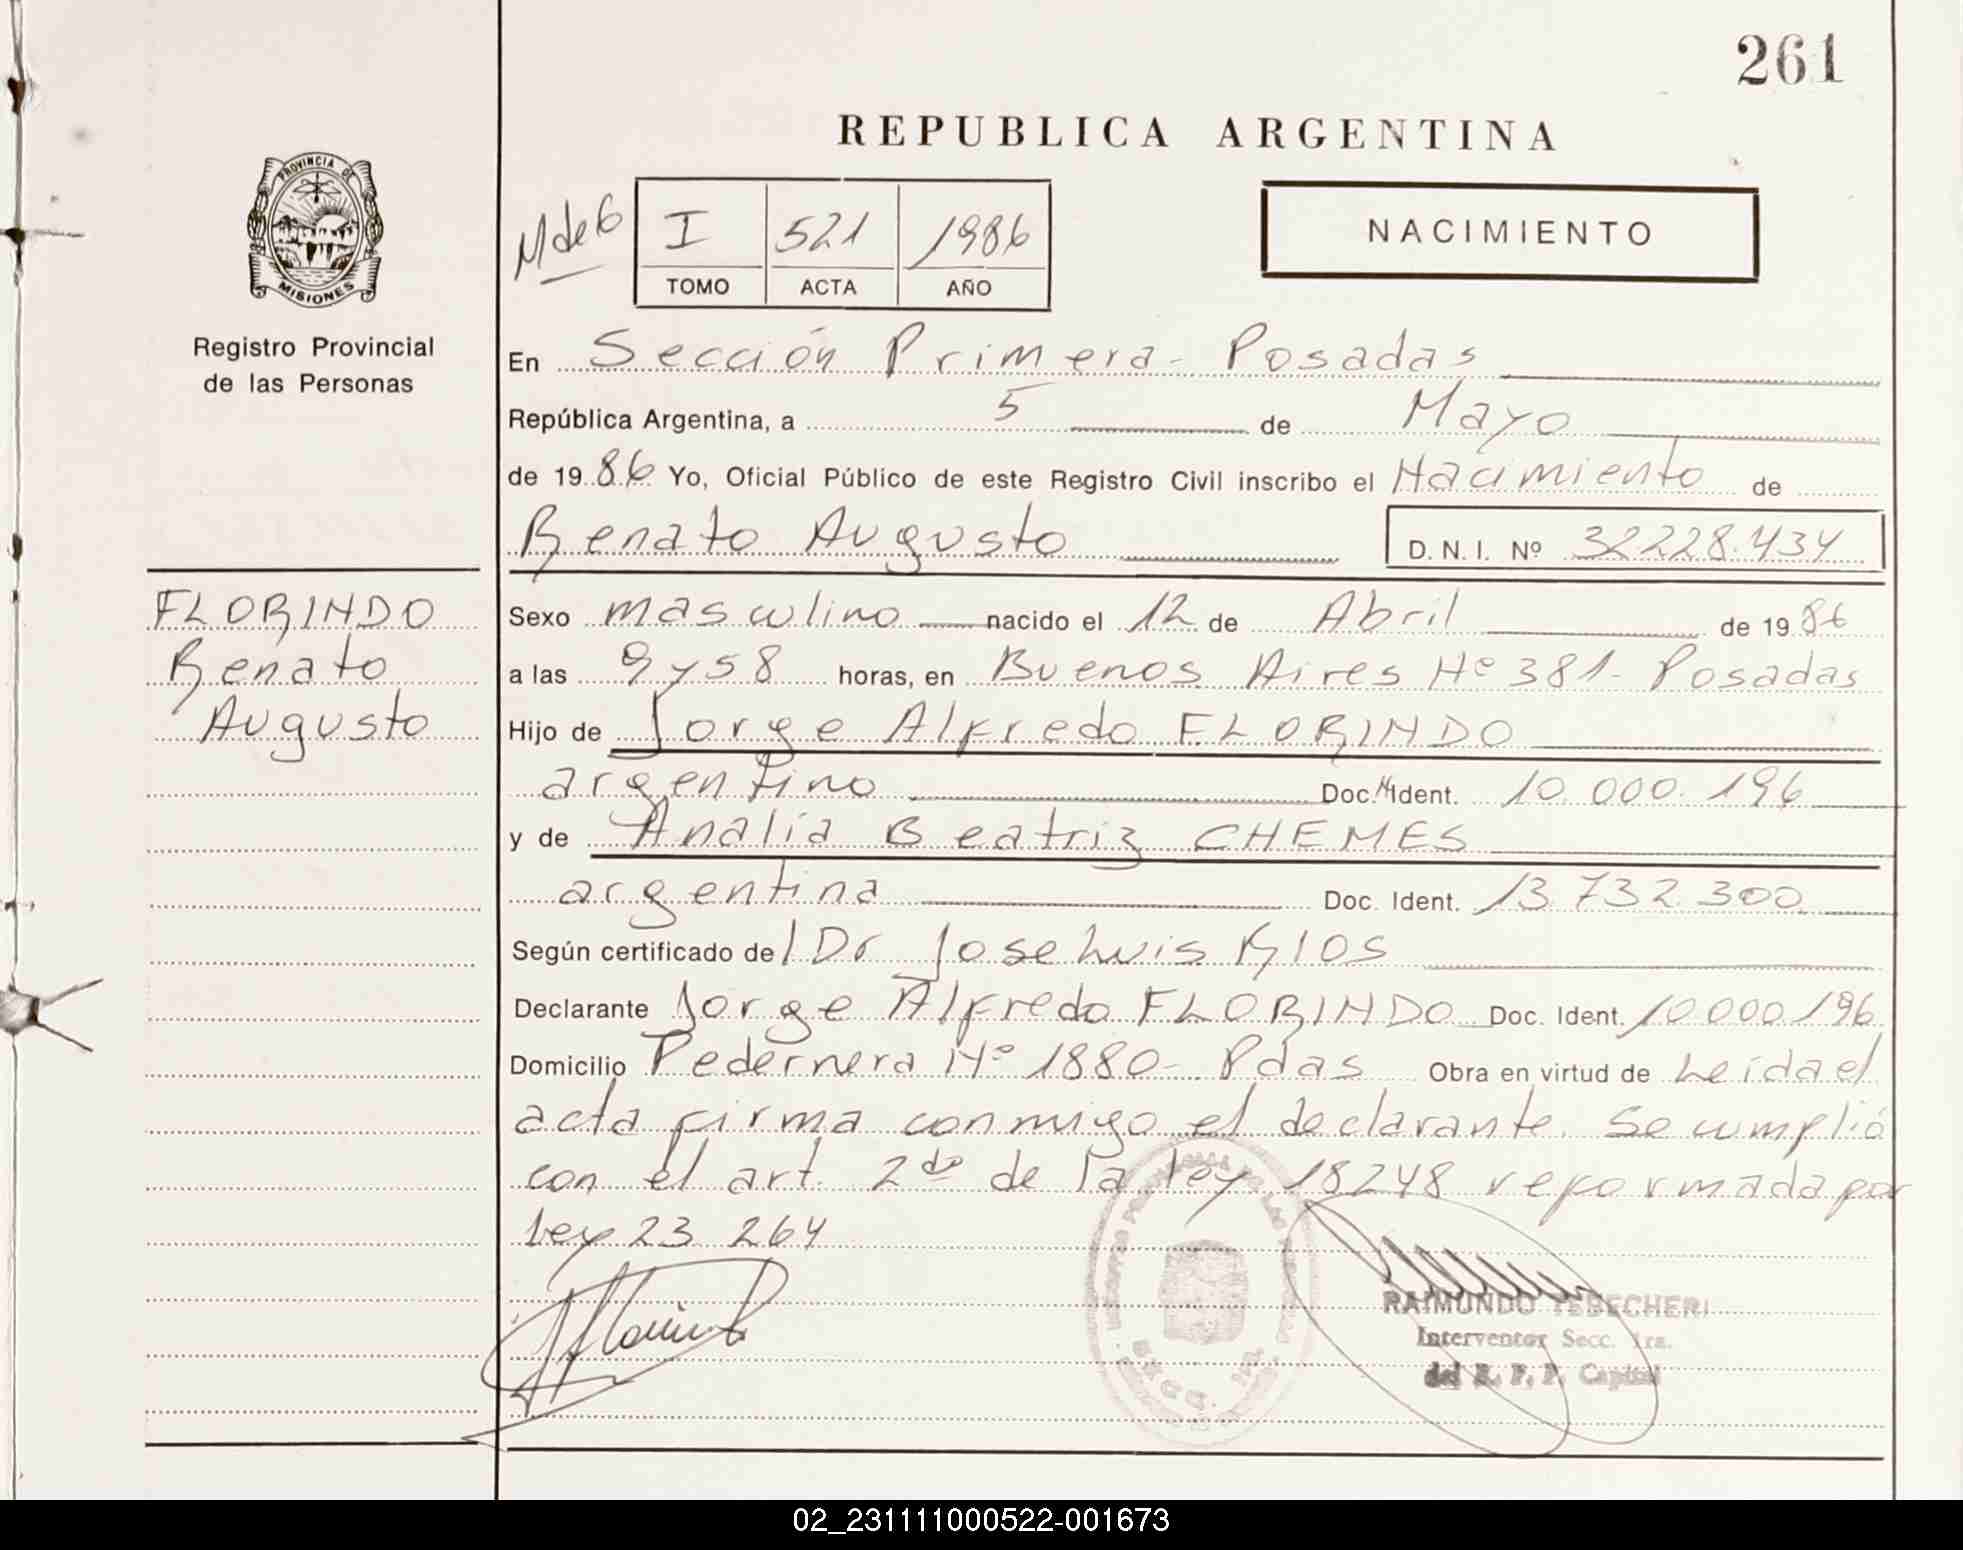 261
REPUBLICA ARGENTINA
PROVINCIA DE
MISIONES
Registro Provincial
de las Personas
M de 6
I 521 1986
TOMO ACTA AÑO
NACIMIENTO
En Sección Primera - Posadas
República Argentina, a 5 de Mayo
de 1986 Yo, Oficial Público de este Registro Civil inscribo el Nacimiento de
Renato Augusto D. N. I. Nº 32228.434
FLORINDO
Renato
Augusto
Sexo masculino nacido el 12 de Abril de 1986
a las 9 y 58 horas, en Buenos Aires Nº 381 - Posadas
Hijo de Jorge Alfredo FLORINDO
argentino Doc. Ident. 10.000.196
y de Analía Beatriz CHEMES
argentina Doc. Ident. 13.732.300
Según certificado del Dr Jose Luis RIOS
Declarante Jorge Alfredo FLORINDO Doc. Ident. 10.000.196
Domicilio Pedernera Nº 1880 - Pdas Obra en virtud de Leida el
acta firma conmigo el declarante. Se cumplió
con el art. 2do de la ley 18248 reformada por
Ley 23.264
RAIMUNDO TEBECHERI
Interventor Secc. 1ra.
del R. P. P. Capital
SECC. 1ra.
02_231111000522-001673